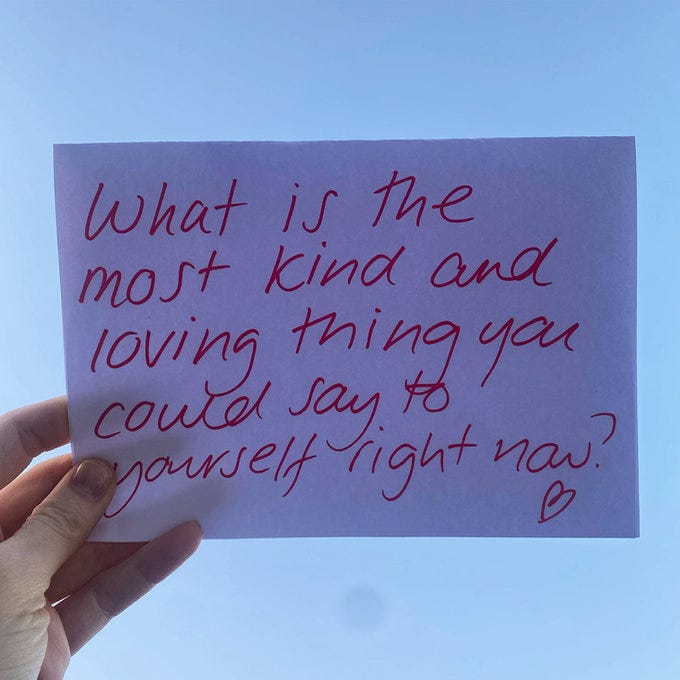 What is the
most kind and
loving thing you
could say to
yourself right now?